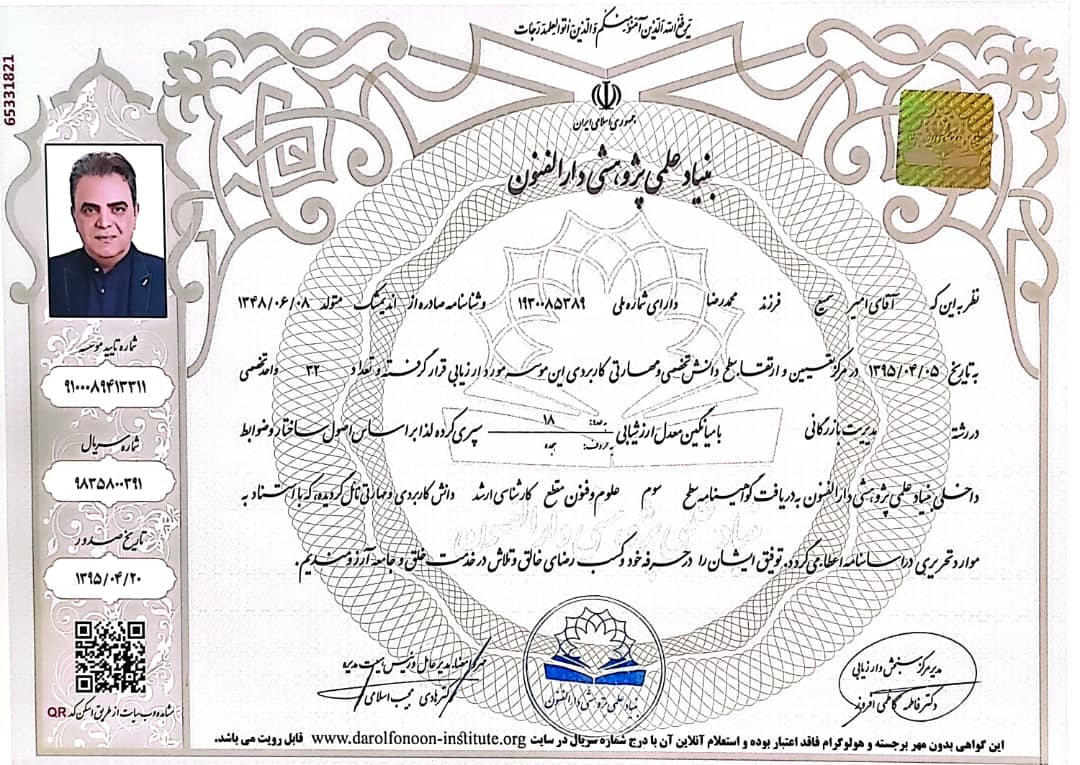 یرفع الله الذین آمنوا منکم والذین اوتوا العلم درجات
جمهوری اسلامی ایران
بنیاد علمی پژوهشی دارالفنون
65331821
نظر به این که آقای امیر سمیع فرزند محمدرضا دارای شماره ملی ۱۹۳۰۰۸۵۳۸۹ و شناسنامه صادره از اندیمشک متولد ۱۳۴۸/۰۶/۰۸
به تاریخ ۱۳۹۵/۰۴/۰۵ در مرکز تعیین و ارتقا سطح دانش تخصصی و مهارتی کاربردی این موسسه مورد ارزیابی قرار گرفته و تعداد ۳۲ واحد تخصصی
در رشته مدیریت بازرگانی با میانگین معدل ارزشیابی به عدد: ۱۸ به حروف: هجده سپری کرده لذا بر اساس اصول ساختار و ضوابط
داخلی بنیاد علمی پژوهشی دارالفنون به دریافت گواهینامه سطح سوم علوم و فنون مقطع کارشناسی ارشد دانش کاربردی و مهارتی نائل گردیده، که با استناد به
موارد تحریری در اساسنامه اعطا می گردد. توفیق ایشان را در حرفه خود و کسب رضای خالق و تلاش در خدمت خلق و جامعه آرزومندیم.
شماره تایید موسسه
۹۱۰۰۰۸۹۴۱۳۳۱۱
شماره سریال
۹۸۳۵۸۰۰۳۹۱
تاریخ صدور
۱۳۹۵/۰۴/۲۰
مشاهده وب سایت از طریق اسکن کد QR
مدیر مرکز سنجش و ارزیابی
دکتر فاطمه کاظمی افروز
مهر و امضاء مدیرعامل و رئیس هیئت مدیره
دکتر هادی مجیب اسلامی
بنیاد علمی پژوهشی دارالفنون
این گواهی بدون مهر برجسته و هولوگرام فاقد اعتبار بوده و استعلام آنلاین آن با درج شماره سریال در سایت www.darolfonoon-institute.org قابل رویت می باشد.